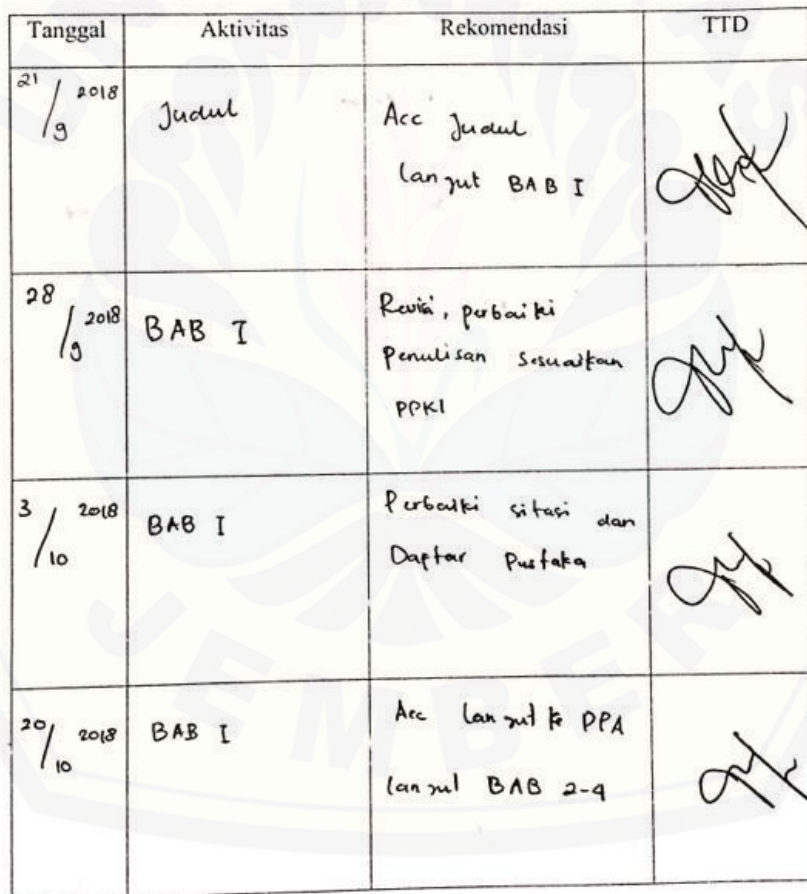 Tanggal Aktivitas Rekomendasi TTD
21/9 2018 Judul Acc Judul
lanjut BAB I
28/9 2018 BAB I Revisi, perbaiki
penulisan sesuaikan
PPKI
3/10 2018 BAB I Perbaiki sitasi dan
Daftar Pustaka
20/10 2018 BAB I Acc lanjut ke DPA
lanjut BAB 2-4
JEMBER